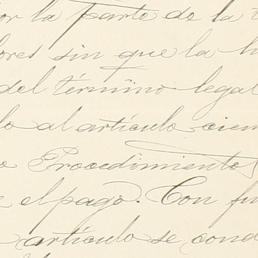 por la parte de la
ores sin que la h
del término legal
lo al artículo cien
o Procedimiento
e el pago. Con fu
artículo se cond